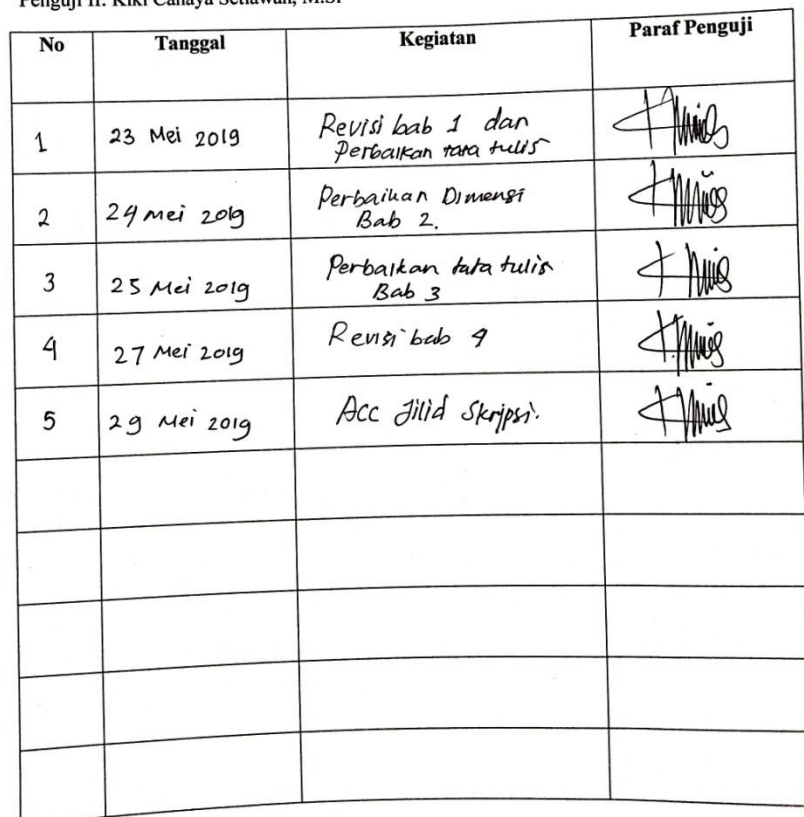 Penguji II: Kiki Cahaya Setiawan, M.Si
No Tanggal Kegiatan Paraf Penguji
1 23 Mei 2019 Revisi bab 1 dan
Perbaikan tata tulis
2 24 Mei 2019 Perbaikan Dimensi
Bab 2.
3 25 Mei 2019 Perbaikan tata tulis
Bab 3
4 27 Mei 2019 Revisi bab 4
5 29 Mei 2019 Acc Jilid Skripsi.